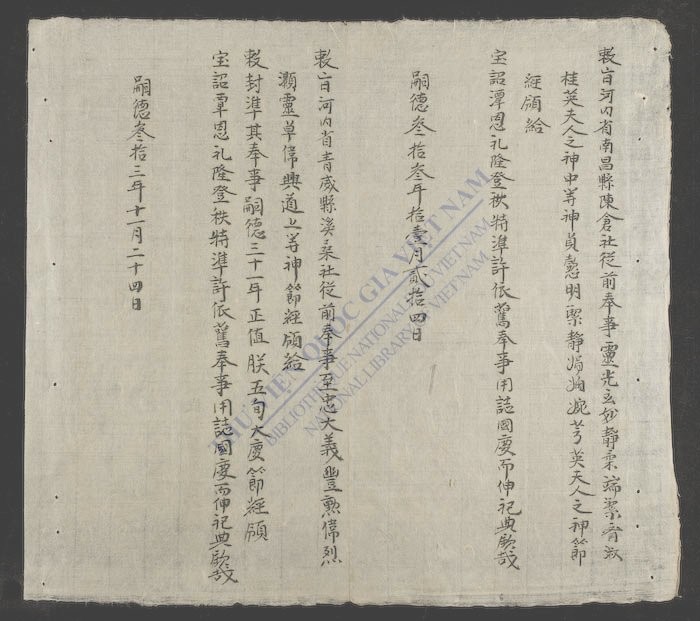 敕旨河内省南昌縣陳倉社從前奉事靈光玄妙靜柔端潔齊淑
桂英夫人之神中等神貞懿明潔靜婉芳英夫人之神節
經頒給
宝詔覃恩礼隆登秩特準許依舊奉事用誌國慶而伸祀典欽哉
嗣德叁拾叁年拾壹月貳拾四日
敕旨河内省青威縣社從前奉事至忠大義豐勲偉烈
顯靈卓偉興道上等神節經頒給
敕封準其奉事嗣德三十一年正值朕五旬大慶節經頒
宝詔覃恩礼隆登秩特準許依舊奉事用誌國慶而伸祀典欽哉
嗣德叁拾三年十一月二十四日
THƯ VIỆN QUỐC GIA VIỆT NAM
BIBLIOTHEQUE NATIONALE DU VIETNAM
NATIONAL LIBRARY OF VIETNAM